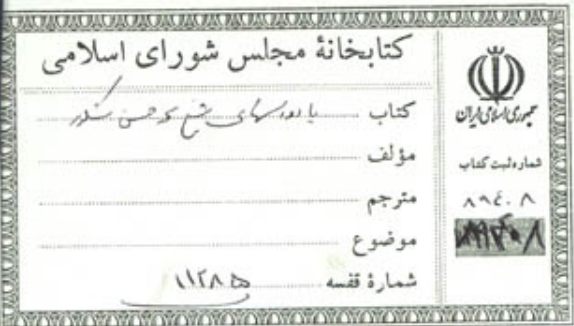 کتابخانهٔ مجلس شورای اسلامی
کتاب یادداشتهای شیخ محمد حسن شکور
مؤلف
مترجم
موضوع
شمارهٔ قفسه ۱۱۲۸۵
جمهوری اسلامی ایران
شماره ثبت کتاب
۸۹۴۰۸